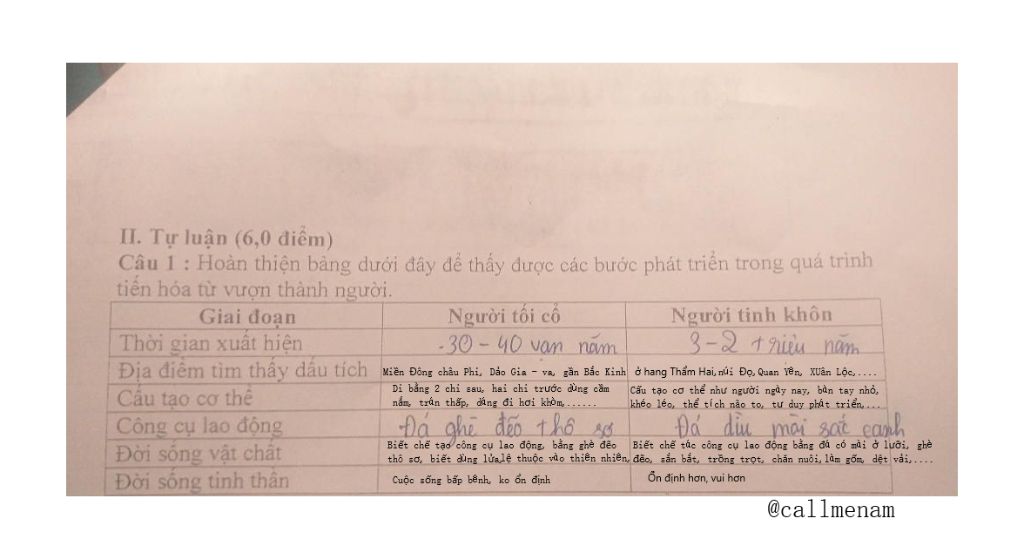 II. Tự luận (6,0 điểm)
Câu 1 : Hoàn thiện bảng dưới đây để thấy được các bước phát triển trong quá trình
tiến hóa từ vượn thành người.
Giai đoạn Người tối cổ Người tinh khôn
Thời gian xuất hiện 30 - 40 vạn năm 3-2 triệu năm
Địa điểm tìm thấy dấu tích Miền Đông châu Phi, Đảo Gia - va, gần Bắc Kinh ở hang Thẩm Hai, núi Đọ, Quan Yên, XUân Lộc,....
Cấu tạo cơ thể Di bằng 2 chi sau, hai chi trước dùng cầm Cấu tạo cơ thể như người ngày nay, bàn tay nhỏ,
nắm, trán thấp, dáng đi hơi khòm,...... khéo léo, thể tích não to, tư duy phát triển,...
Công cụ lao động Đá ghè đẽo thô sơ Đá dìu mài sắc cạnh
Đời sống vật chất Biết chế tạo công cụ lao động, bằng ghè đẽo Biết chế tác công cụ lao động bằng đá có mài ở lưỡi, ghè
thô sơ, biết dùng lửa,lệ thuộc vào thiên nhiên, đẽo, săn bắt, trồng trọt, chăn nuôi,làm gốm, dệt vải,....
Đời sống tinh thần Cuộc sống bấp bênh, ko ổn định Ổn định hơn, vui hơn
@callmenam